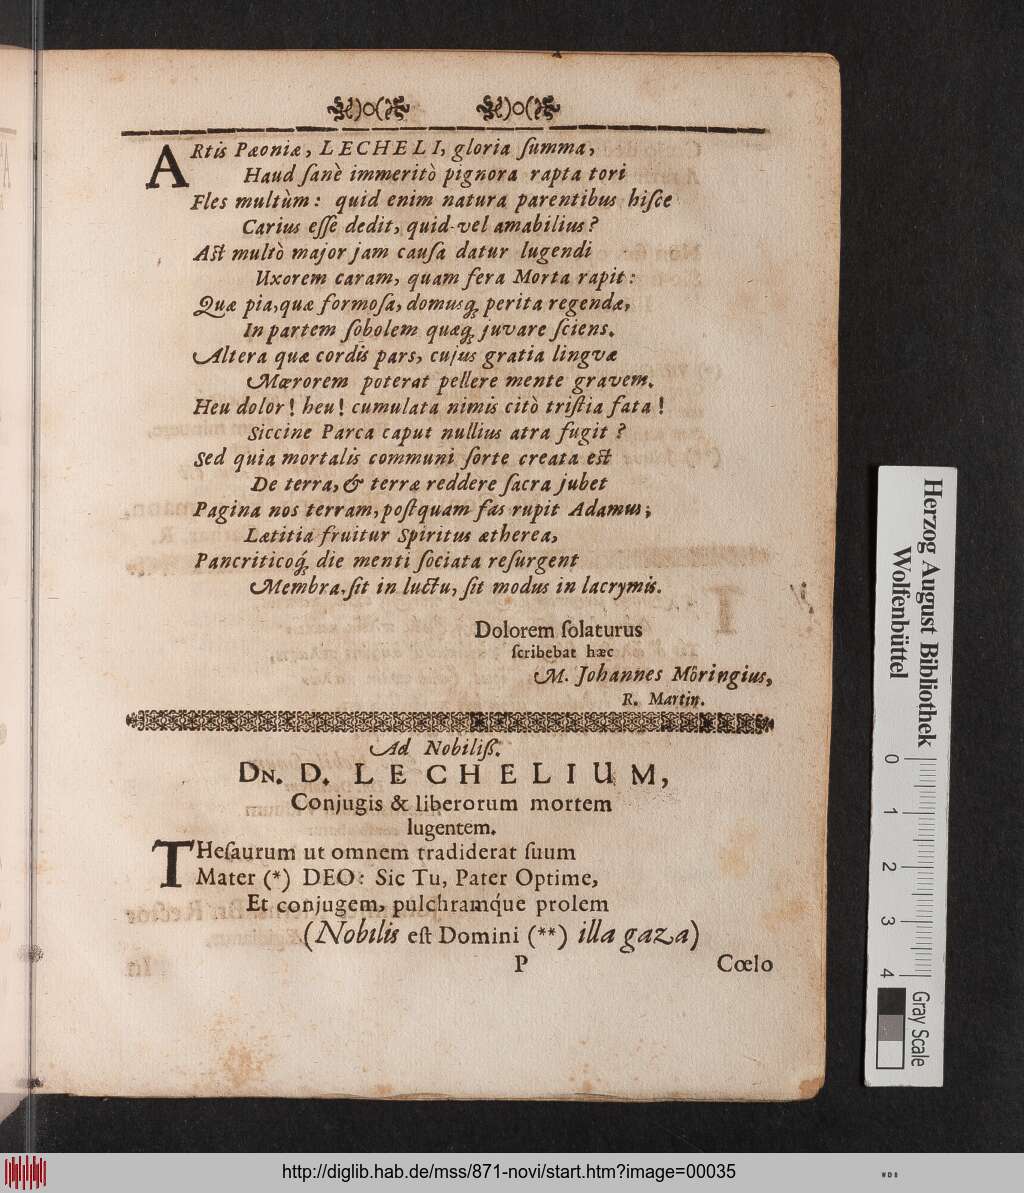 ARtis Pæoniæ, LECHELI, gloria ſumma,
Haud ſanè immeritò pignora rapta tori
Fles multùm: quid enim natura parentibus hiſce
Carius eſſe dedit, quid vel amabilius?
Aſt multò major jam cauſa datur lugendi
Uxorem caram, quam fera Morta rapit:
Quæ pia, quæ formoſa, domusq; perita regendæ,
In partem ſobolem quæq; juvare ſciens.
Altera quæ cordis pars, cujus gratia lingvæ
Mœrorem poterat pellere mente gravem.
Heu dolor! heu! cumulata nimis citò triſtia fata!
Siccine Parca caput nullius atra fugit?
Sed quia mortalis communi ſorte creata eſt
De terra, & terræ reddere ſacra jubet
Pagina nos terram, poſtquam fas rupit Adamus;
Lætitia fruitur Spiritus ætherea,
Pancriticoq́; die menti ſociata reſurgent
Membra, ſit in luctu, ſit modus in lacrymis.
Dolorem ſolaturus
ſcribebat hæc
M. Johannes Möringius,
R. Martin.
Ad Nobiliß.
DN. D. LECHELIUM,
Conjugis & liberorum mortem
lugentem.
THeſaurum ut omnem tradiderat ſuum
Mater (*) DEO: Sic Tu, Pater Optime,
Et conjugem, pulchramq́ue prolem
(Nobilis eſt Domini (**) illa gaza)
P Cœlo
Herzog August Bibliothek
Wolfenbüttel
0 1 2 3 4
Gray Scale
http://diglib.hab.de/mss/871-novi/start.htm?image=00035